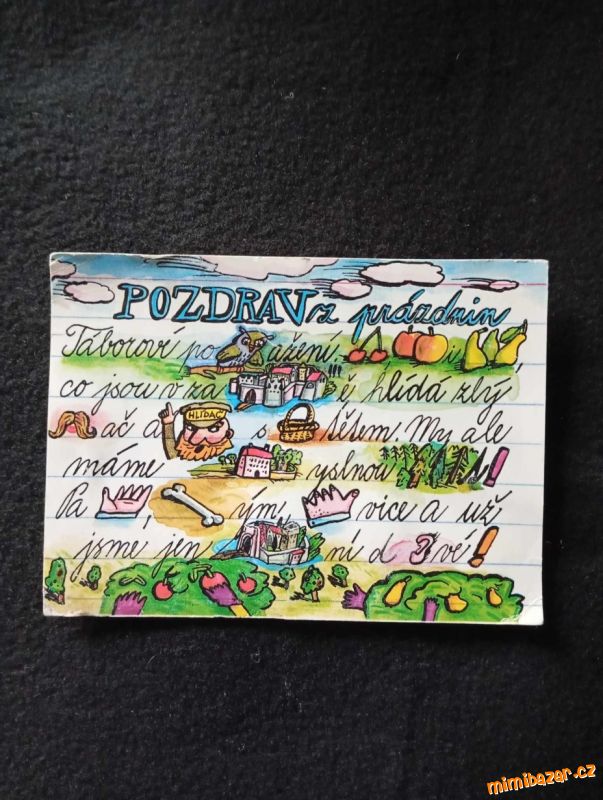 POZDRAV z prázdnin
Táboroví po ažení. u
co jsou v zá ě hlídá zlý
ač a HLÍDAČ s štětem My ale
máme yslnou !
Pa ým, vice a už
jsme jen ní d vě!
mimibazar.cz